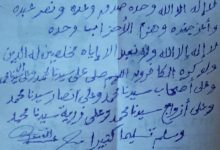 لا إله إلا الله وحده صدق وعده ونصر عبده
وأعز جنده وهزم الأحزاب وحده
لا إله إلا الله ولا نعبد إلا إياه مخلصين له الدين
ولو كره الكافرون اللهم صل على سيدنا محمد وعلى آل سيدنا محمد
وعلى أصحاب سيدنا محمد وعلى أنصار سيدنا محمد
وعلى أزواج سيدنا محمد وعلى ذرية سيدنا محمد
وسلم تسليما كثيرا